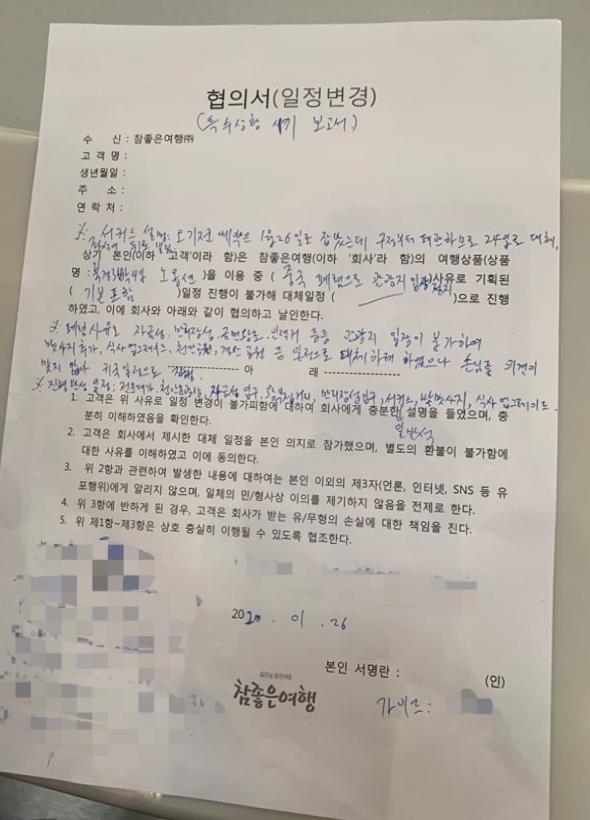 협의서(일정변경)
(특수상황 사기 보고서)
수 신 : 참좋은여행㈜
고 객 명 :
생년월일 :
주 소 :
연 락 처 :
※ 서커스 설명: 오기전 예약은 1월26일로 잡았는데 폐관하므로 24일로 대체,
상기 본인(이하 '고객'이라 함)은 참좋은여행(이하 '회사'라 함)의 여행상품(상품
명 : 북경3박4일 노옵션 )을 이용 중 ( 중국 폐렴으로 관광지 입장 )사유로 기획된
( 기본 포함 )일정 진행이 불가해 대체일정 ( )으로 진행
하였고, 이에 회사와 아래와 같이 협의하고 날인한다.
※ 폐렴사유로 자금성, 만리장성, 등등 관광지 입장이 불가하여
발마사지추가, 식사업그레이드, 등 일정으로 대체하려 하였으나 손님들 의견이
맞지 않아
아 래
※ 진행한 일정: 자금성 입구, 만리장성입구, 서커스, 발마사지, 식사업그레이드.
1. 고객은 위 사유로 일정 변경이 불가피함에 대하여 회사에게 충분한 설명을 들었으며, 충
분히 이해하였음을 확인한다.
일반석
2. 고객은 회사에서 제시한 대체 일정을 본인 의지로 참가했으며, 별도의 환불이 불가함에
대한 사유를 이해하였고 이에 동의한다.
3. 위 2항과 관련하여 발생한 내용에 대하여는 본인 이외의 제3자(언론, 인터넷, SNS 등 유
포행위)에게 알리지 않으며, 일체의 민/형사상 이의를 제기하지 않음을 전제로 한다.
4. 위 3항에 반하게 된 경우, 고객은 회사가 받는 유/무형의 손실에 대한 책임을 진다.
5. 위 제1항~제3항은 상호 충실히 이행될 수 있도록 협조한다.
2020 . 01 . 26
본인 서명란 : (인)
참좋은여행
가이드 :